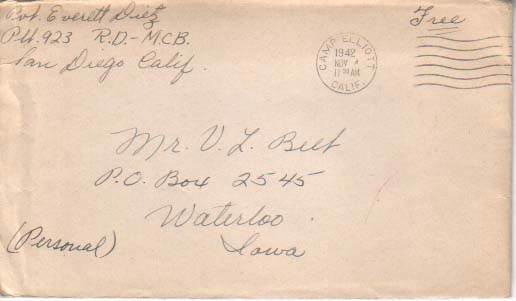 Pvt. Everett Dietz
Plt. 923 R.D.-M.C.B.
San Diego Calif.
Free
CAMP ELLIOTT
1942
NOV 4
11 AM
CALIF.
Mr. V. L. Belt
P.O. Box 2545
Waterloo.
Iowa
(Personal)